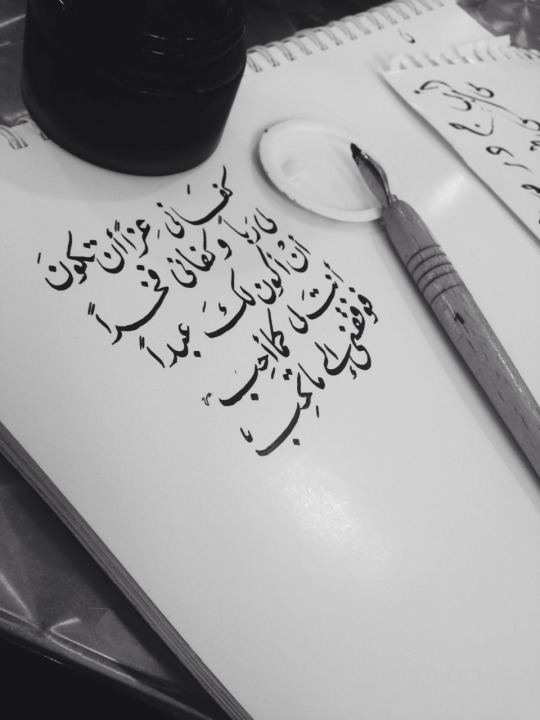 كفَانى عِزاً أن تكونَ
لى رباً و كفانى فخراً
أنْ أكون لكَ عبداً
أنت لى كما أحِبَ
فوفقنى إلى ما تحِب